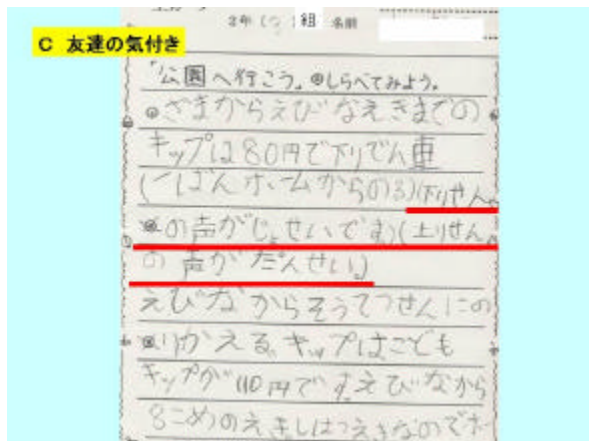 C 友達の気付き
2年( )組 名前
「公園へ行こう。」しらべてみよう。
ざまからえびなえきまでの
キップは80円で下りでん車
(一ばんホームからのる)(下りせん
の声がじょせいです)(上りせん
の声がだんせい)
えびなからそうてつせんにの
りかえる。キップはこども
キップが110円です。えびなから
8こめのえき